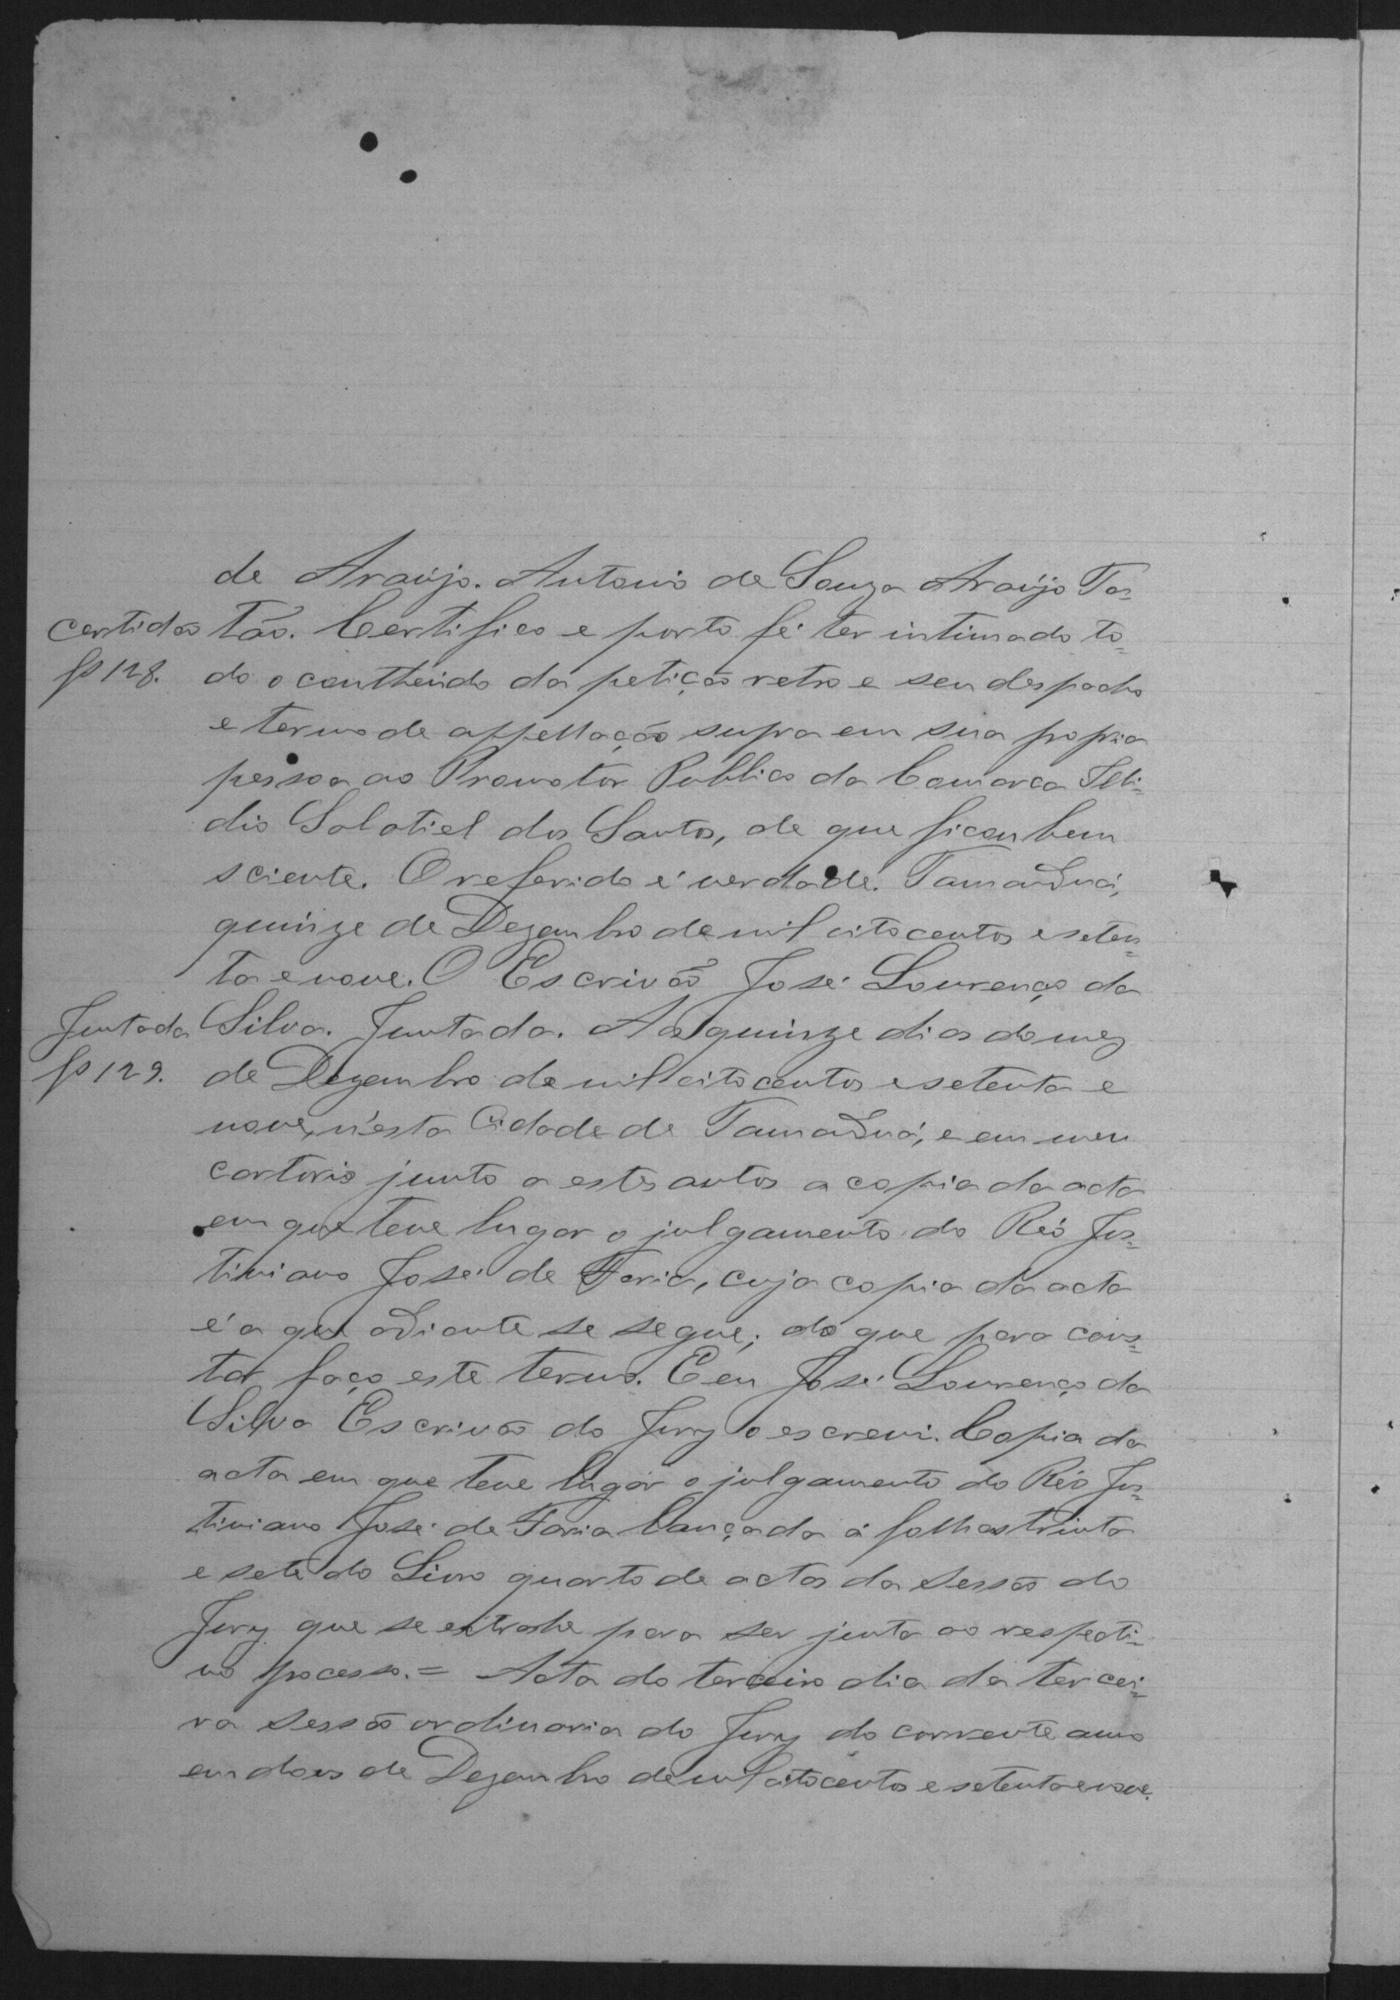 de Araújo. Antonio de Souza Araújo Tos=
Certidão tão. Certifico e porto fé ter intimado to=
fs 128. do o contheúdo da petição retro e seu despacho
e termo de appellação supra em sua propria
pessoa ao Promotor Publico da Comarca
dio Salatiel dos Santos, de que ficou bem
sciente. O referido é verdade. Tamanduá,
quinze de Dezembro de mil oitocentos e seten=
ta e nove. O Escrivão José Lourenço da
Juntada Silva. Juntada. Aos quinze dias do mez
fs 129. de Dezembro de mil oitocentos e setenta e
nove, n'esta Cidade de Tamanduá, e em meu
cartorio junto a estes autos a copia da acta
em que teve lugar o julgamento do Réo Jus=
tiniano José de Faria, cuja copia da acta
é a que adiante se segue; do que para cons=
tar faço este termo. E eu José Lourenço da
Silva Escrivão do Jury o escrevi. Copia da
acta em que teve lugar o julgamento do Réo Jus=
tiniano José de Faria lançada á folhas trinta
e sete do Livro quarto de actas da sessão do
Jury que se extrahe para ser junta ao respecti=
vo processo. = Acta do terceiro dia da tercei=
ra sessão ordinaria do Jury do corrente anno
em dois de Dezembro de mil oitocentos e setenta e nove.